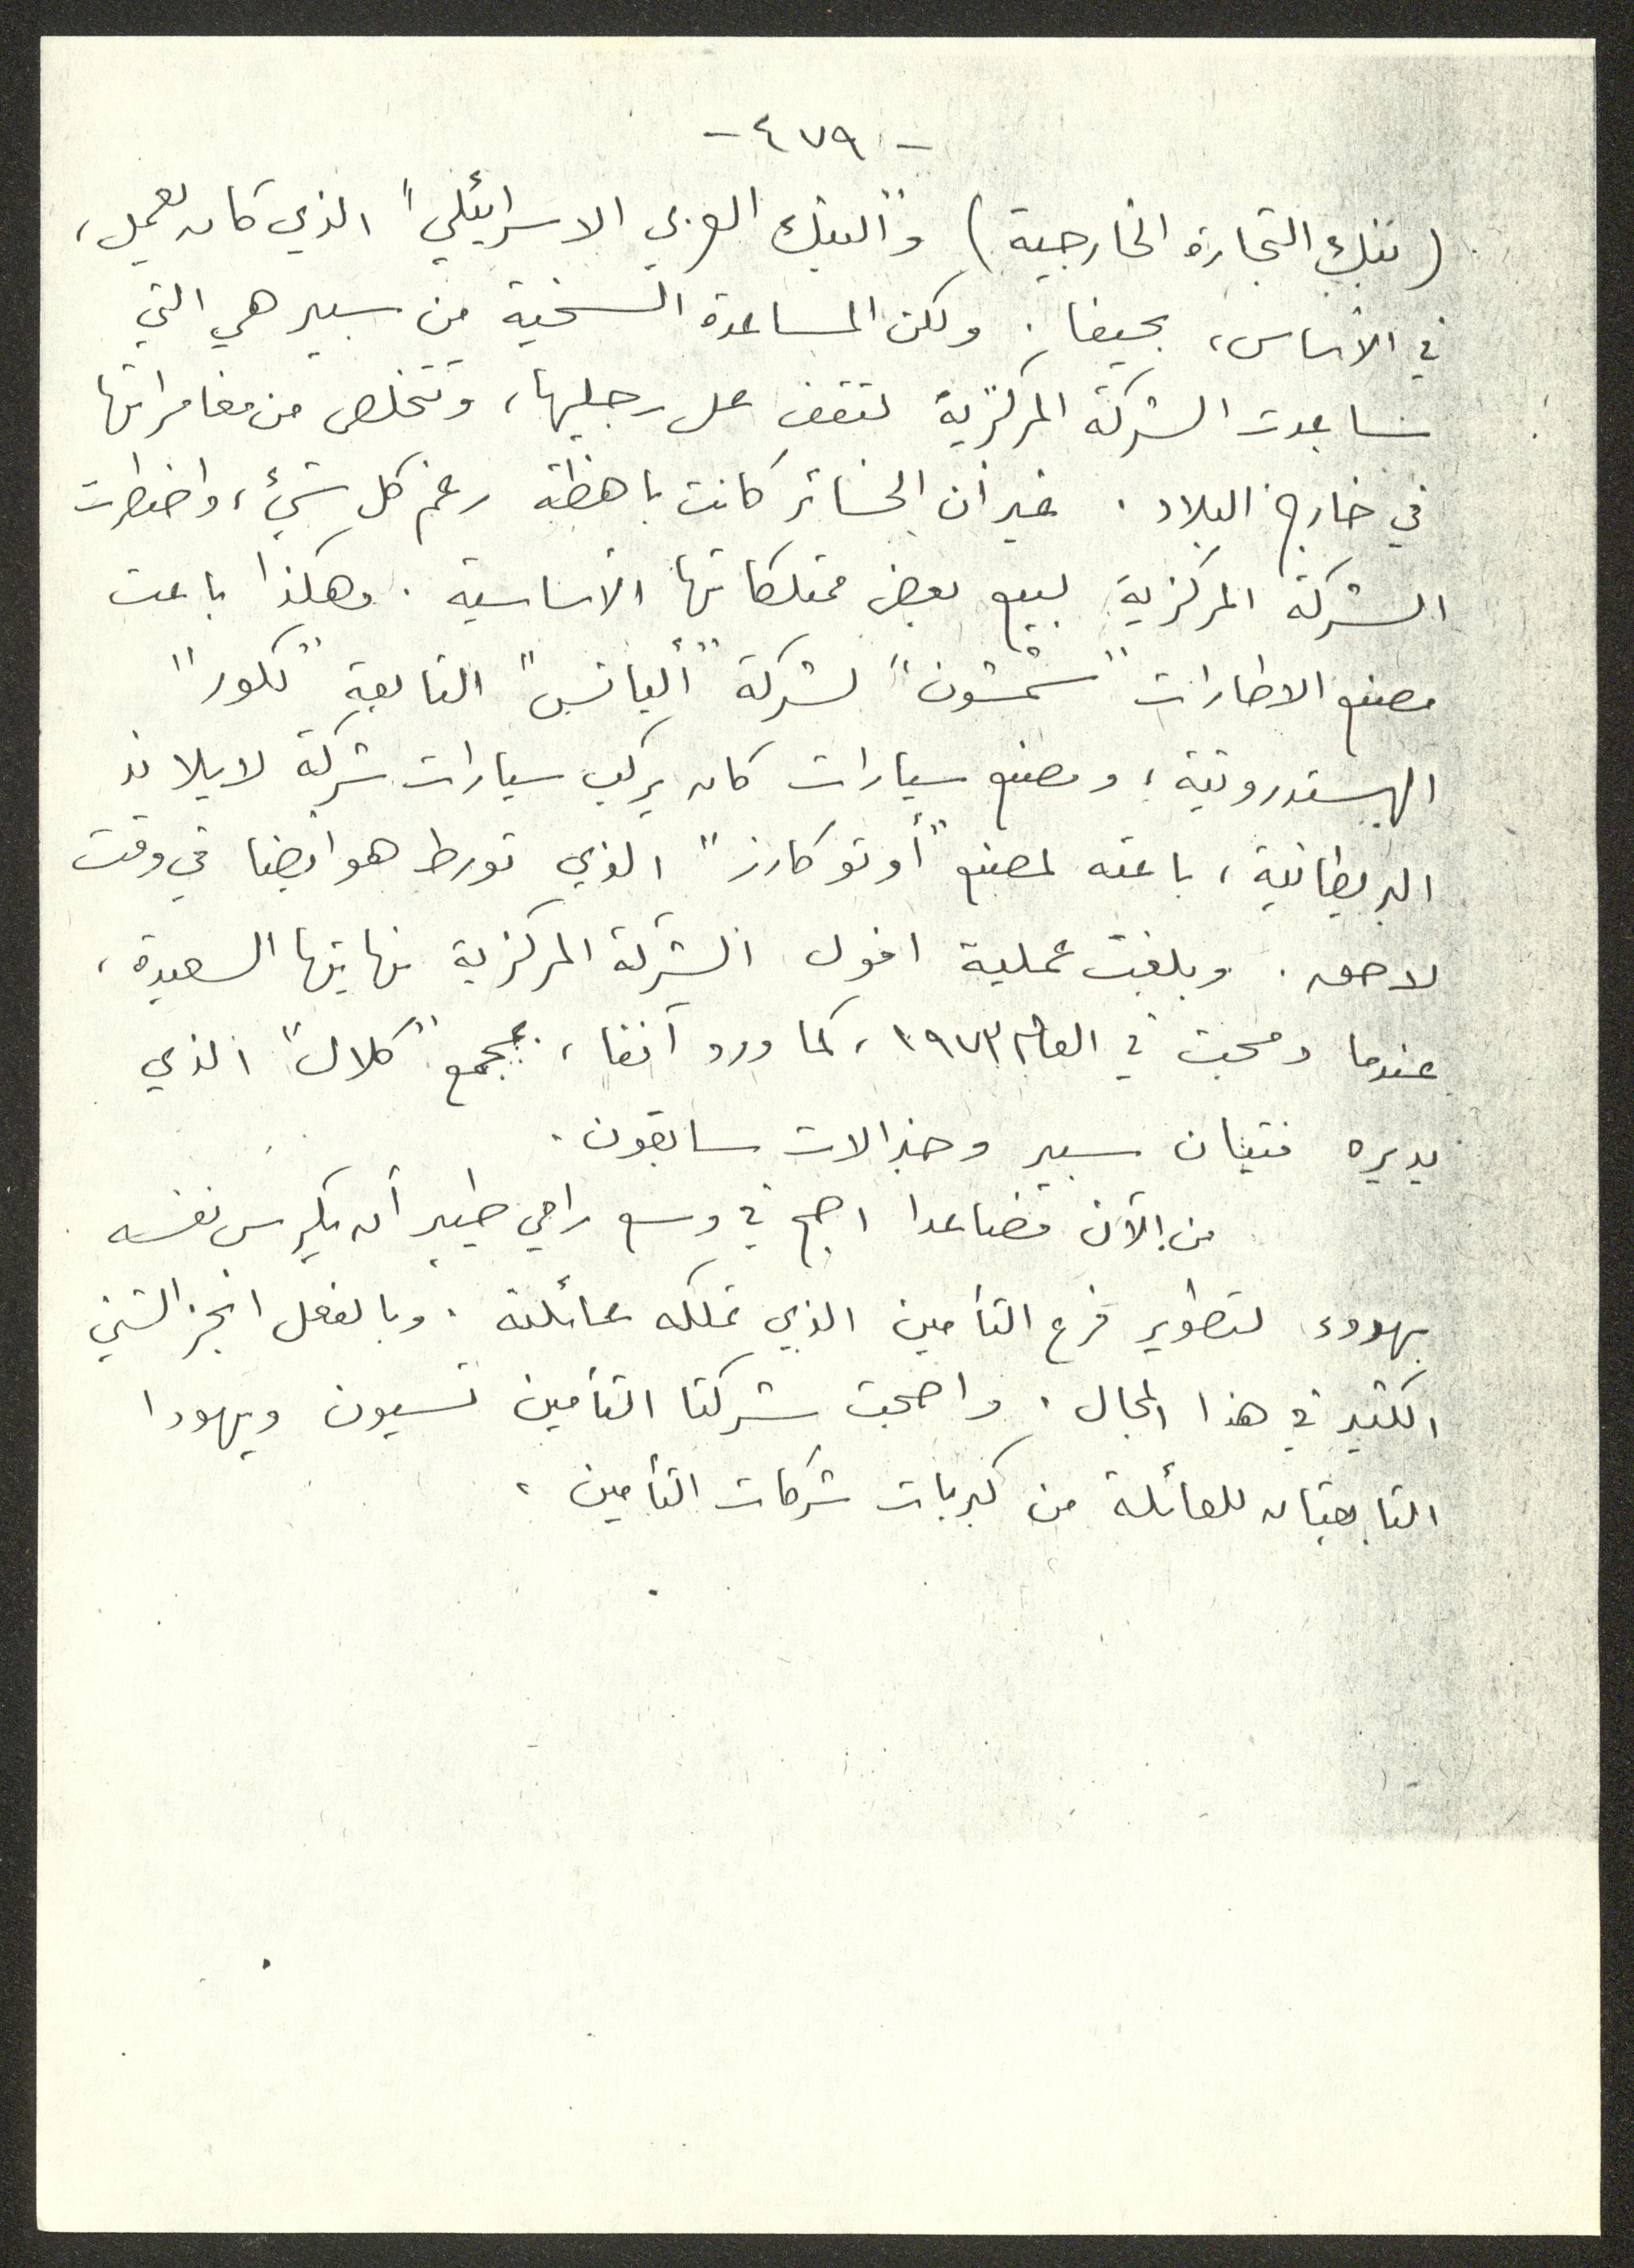 - ٤٧٩ -
(بنك التجارة الخارجية) و"البنك العربي الاسرائيلي" الذي كان يعمل،
في الأساس، بحيفا. ولكن المساعدة السخية من سبير هي التي
ساعدت الشركة المركزية لتقف على رجليها، وتتخلص من مغامراتها
في خارج البلاد. غير أن الخسائر كانت باهظة رغم كل شيء، واضطرت
الشركة المركزية لبيع بعض ممتلكاتها الأساسية. وهكذا باعت
مصنع الاطارات "شمشون" لشركة "أليانس" التابعة "لكور"
الهستدروتية؛ ومصنع سيارات كان يركب سيارات شركة لايلاند
البريطانية، باعته لمصنع "أوتوكارز" الذي تورط هو ايضا في وقت
لاحق. وبلغت عملية افول الشركة المركزية نهايتها السعيدة،
عندما دمجت في العام ١٩٧٣، كما ورد آنفا، بمجمع "كلال" الذي
يديره فتيان سبير وجنرالات سابقون.
من الآن فصاعدا اصبح في وسع رامي طيبر أن يكرس نفسه
بهدوء لتطوير فرع التأمين الذي تملكه عائلته. وبالفعل انجز الشيء
الكثير في هذا المجال. واصبحت شركتا التأمين تسيون ويهودا
التابعتان للعائلة من كبريات شركات التأمين.